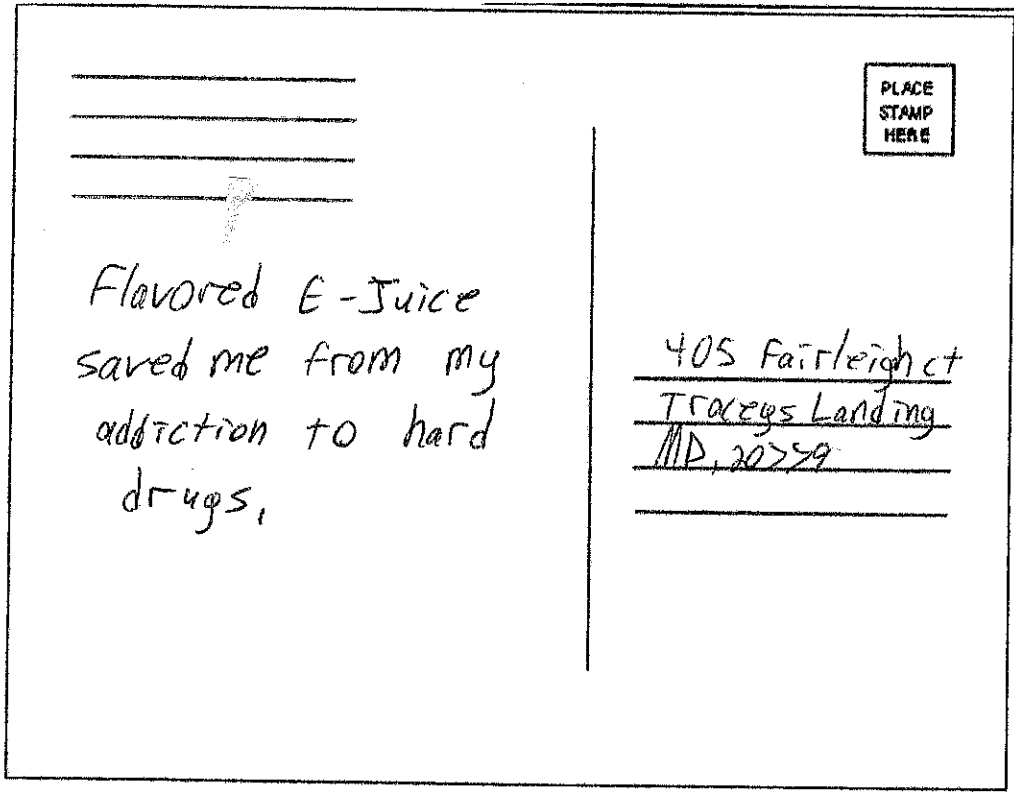 PLACE
STAMP
HERE
Flavored E-Juice
saved me from my
addiction to hard
drugs,
405 Fairleigh ct
Traceys Landing
MD, 20779